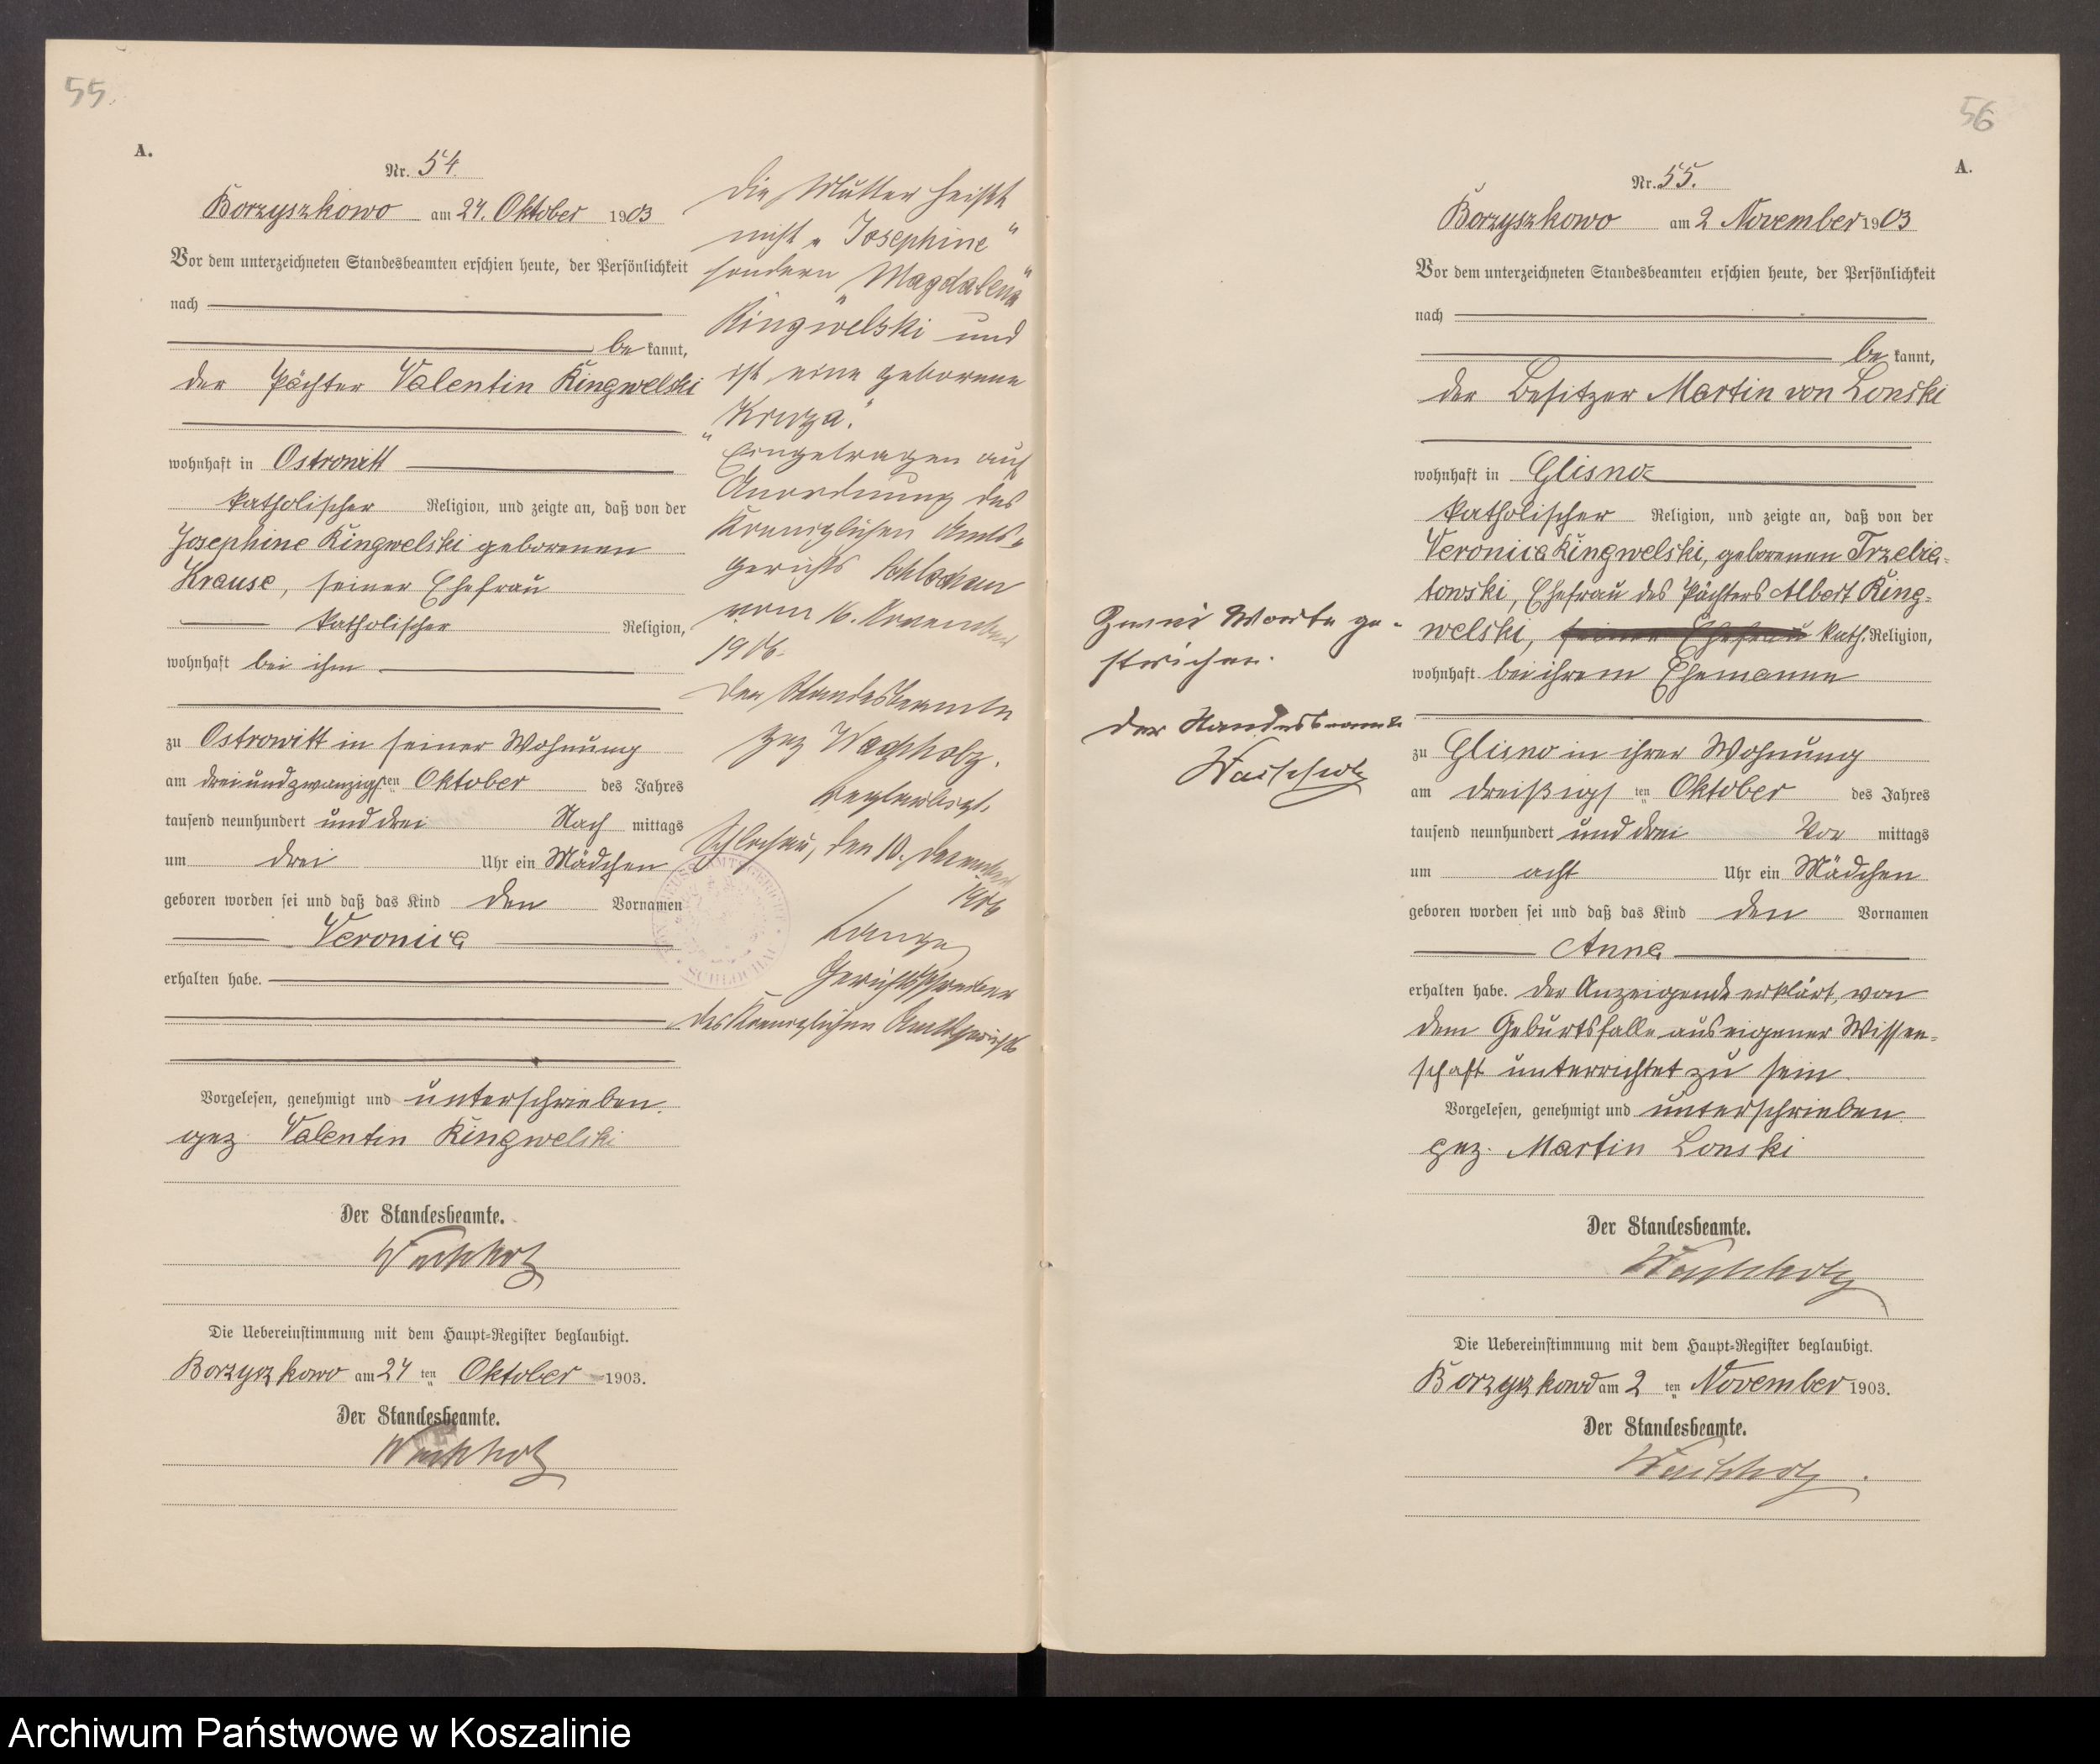 55.
A.
Nr. 54.
Borzyszkowo am 24. Oktober 1903
Vor dem unterzeichneten Standesbeamten erschien heute, der Persönlichkeit
nach
be kannt,
der Pächter Valentin Kingwelski
wohnhaft in Ostrowitt
katholischer Religion, und zeigte an, daß von der
Josephine Kingwelski geborenen
Krause, seiner Ehefrau
katholischer Religion,
wohnhaft bei ihm
zu Ostrowitt in seiner Wohnung
am dreiundzwanzigsten Oktober des Jahres
tausend neunhundert und drei Nach mittags
um drei Uhr ein Mädchen
geboren worden sei und daß das Kind den Vornamen
Veronica
erhalten habe.
Vorgelesen, genehmigt und unterschrieben.
gez. Valentin Kingwelski
Der Standesbeamte.
Wachholz
Die Uebereinstimmung mit dem Haupt-Register beglaubigt.
Borzyszkowo am 24 ten Oktober 1903.
Der Standesbeamte.
Wachholz
Die Mutter heißt
nicht "Josephine"
sondern "Magdalena"
Kingwelski und
ist eine geborene
"Kruza".
Eingetragen auf
Anordnung des
Königlichen Amts-
gerichts Schlochau
vom 16. November
1906.
Der Standesbeamte
gez Wachholz.
Beglaubigt.
Schlochau, den 10. Dezember
1906
Lange
Gerichtsschreiber
des Königlichen Amtsgerichts
SCHLOCHAU
56
A.
Nr. 55.
Borzyszkowo am 2 November 1903
Vor dem unterzeichneten Standesbeamten erschien heute, der Persönlichkeit
nach
be kannt,
der Besitzer Martin von Lonski
wohnhaft in Glisno
katholischer Religion, und zeigte an, daß von der
Veronica Kingwelski, geborenen Trzebia-
towski, Ehefrau des Pächters Albert King-
welski, seiner Ehefrau kath. Religion,
wohnhaft bei ihrem Ehemanne
zu Glisno in ihrer Wohnung
am dreißigsten Oktober des Jahres
tausend neunhundert und drei Vor mittags
um acht Uhr ein Mädchen
geboren worden sei und daß das Kind den Vornamen
Anna
erhalten habe. Der Anzeigende erklärt, von
dem Geburtsfalle aus eigener Wissen-
schaft unterrichtet zu sein.
Vorgelesen, genehmigt und unterschrieben.
gez. Martin Lonski
Der Standesbeamte.
Wachholz
Die Uebereinstimmung mit dem Haupt-Register beglaubigt.
Borzyszkowo am 2 ten November 1903.
Der Standesbeamte.
Wachholz
Zwei Worte ge-
strichen.
Der Standesbeamte
Wachholz
Archiwum Państwowe w Koszalinie